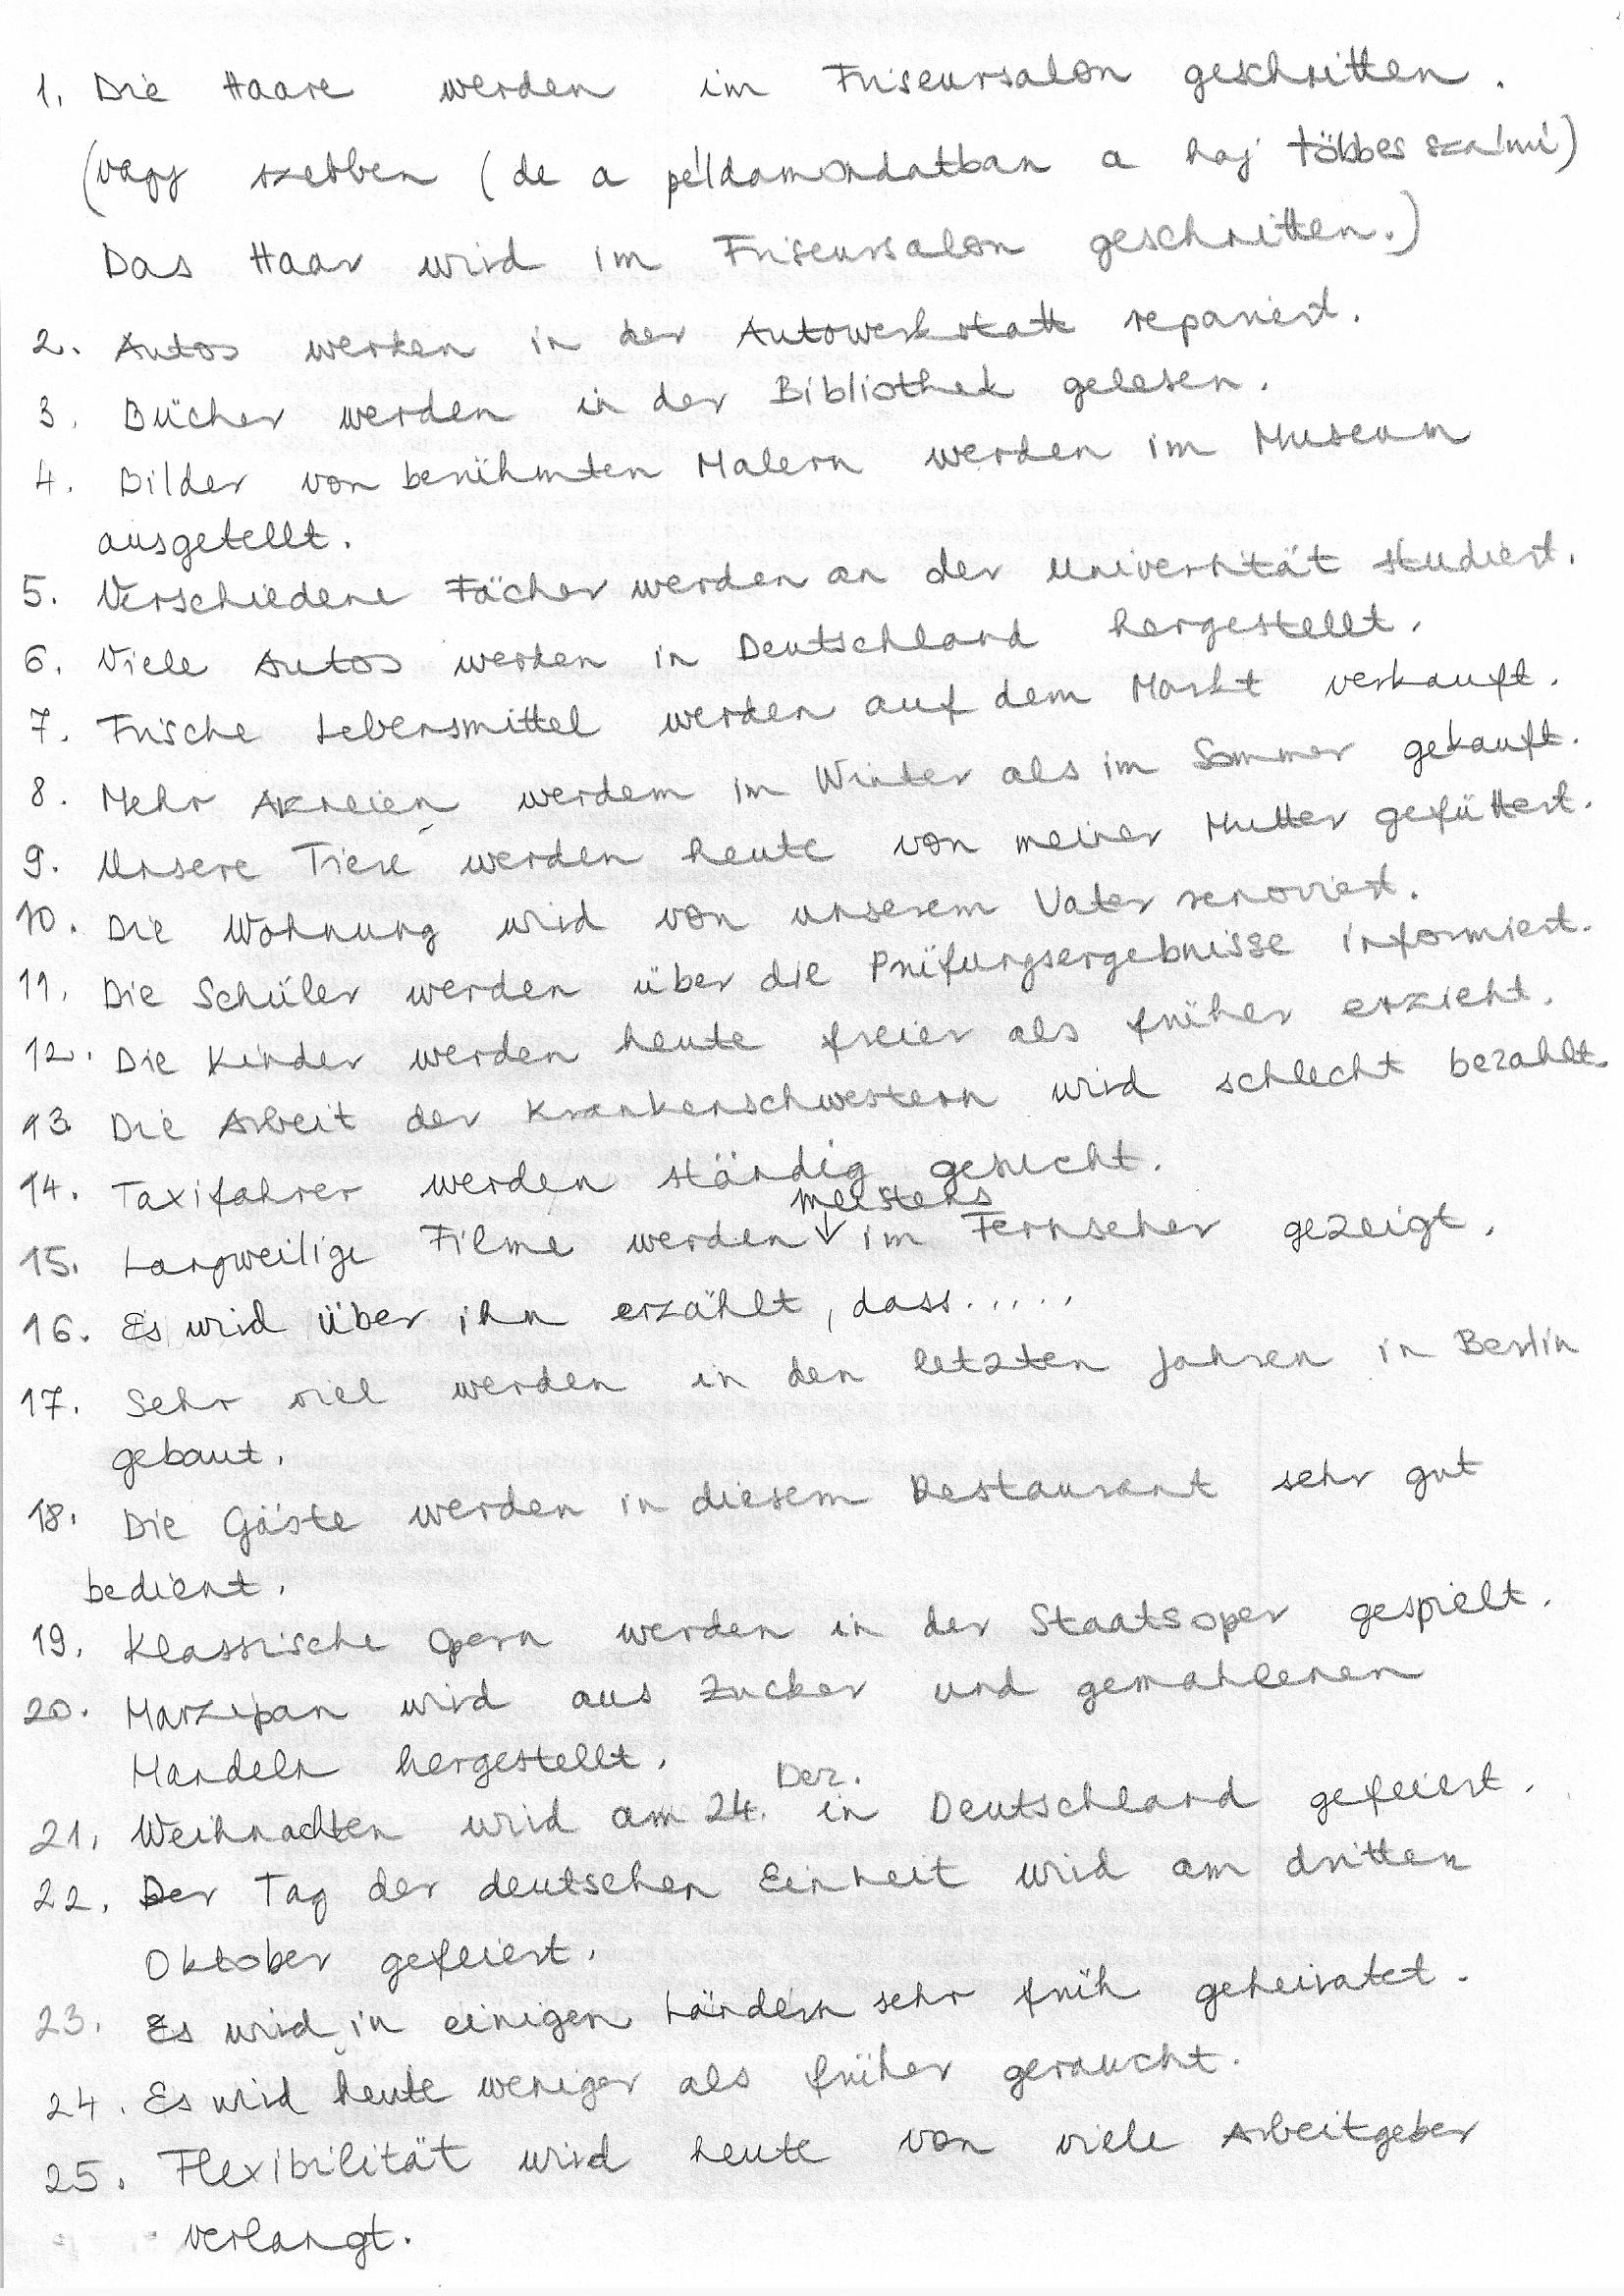 1. Die Haare werden im Friseursalon geschnitten.
(vagy szebben (de a példamondatban a haj többes számú)
Das Haar wird im Friseursalon geschnitten.)
2. Autos werden in der Autowerkstatt repariert.
3. Bücher werden in der Bibliothek gelesen.
4. Bilder von berühmten Malern werden im Museum
ausgetellt.
5. Verschiedene Fächer werden an der Universität studiert.
6. Viele Autos werden in Deutschland hergestellt.
7. Frische Lebensmittel werden auf dem Markt verkauft.
8. Mehr Arzneien werdem im Winter als im Sommer gekauft.
9. Unsere Tiere werden heute von meiner Mutter gefüttert.
10. Die Wohnung wird von unserem Vater renoviert.
11. Die Schüler werden über die Prüfungsergebnisse informiert.
12. Die Kinder werden heute freier als früher erzieht.
13 Die Arbeit der Krankenschwestern wird schlecht bezahlt.
14. Taxifahrer werden ständig gesucht.
meistens
15. Langweilige Filme werden ↓ im Fernseher gezeigt.
16. Es wird über ihn erzählt, dass.....
17. Sehr viel werden in den letzten Jahren in Berlin
gebaut.
18. Die Gäste werden in diesem Restaurant sehr gut
bedient.
19. Klassische Opern werden in der Staatsoper gespielt.
20. Marzipan wird aus Zucker und gemahlenen
Mandeln hergestellt.
Dez.
21. Weihnachten wird am 24. in Deutschland gefeiert.
22. Der Tag der deutschen Einheit wird am dritten
Oktober gefeiert.
23. Es wird in einigen Ländern sehr früh geheiratet.
24. Es wird heute weniger als früher geraucht.
25. Flexibilität wird heute von viele Arbeitgeber
verlangt.